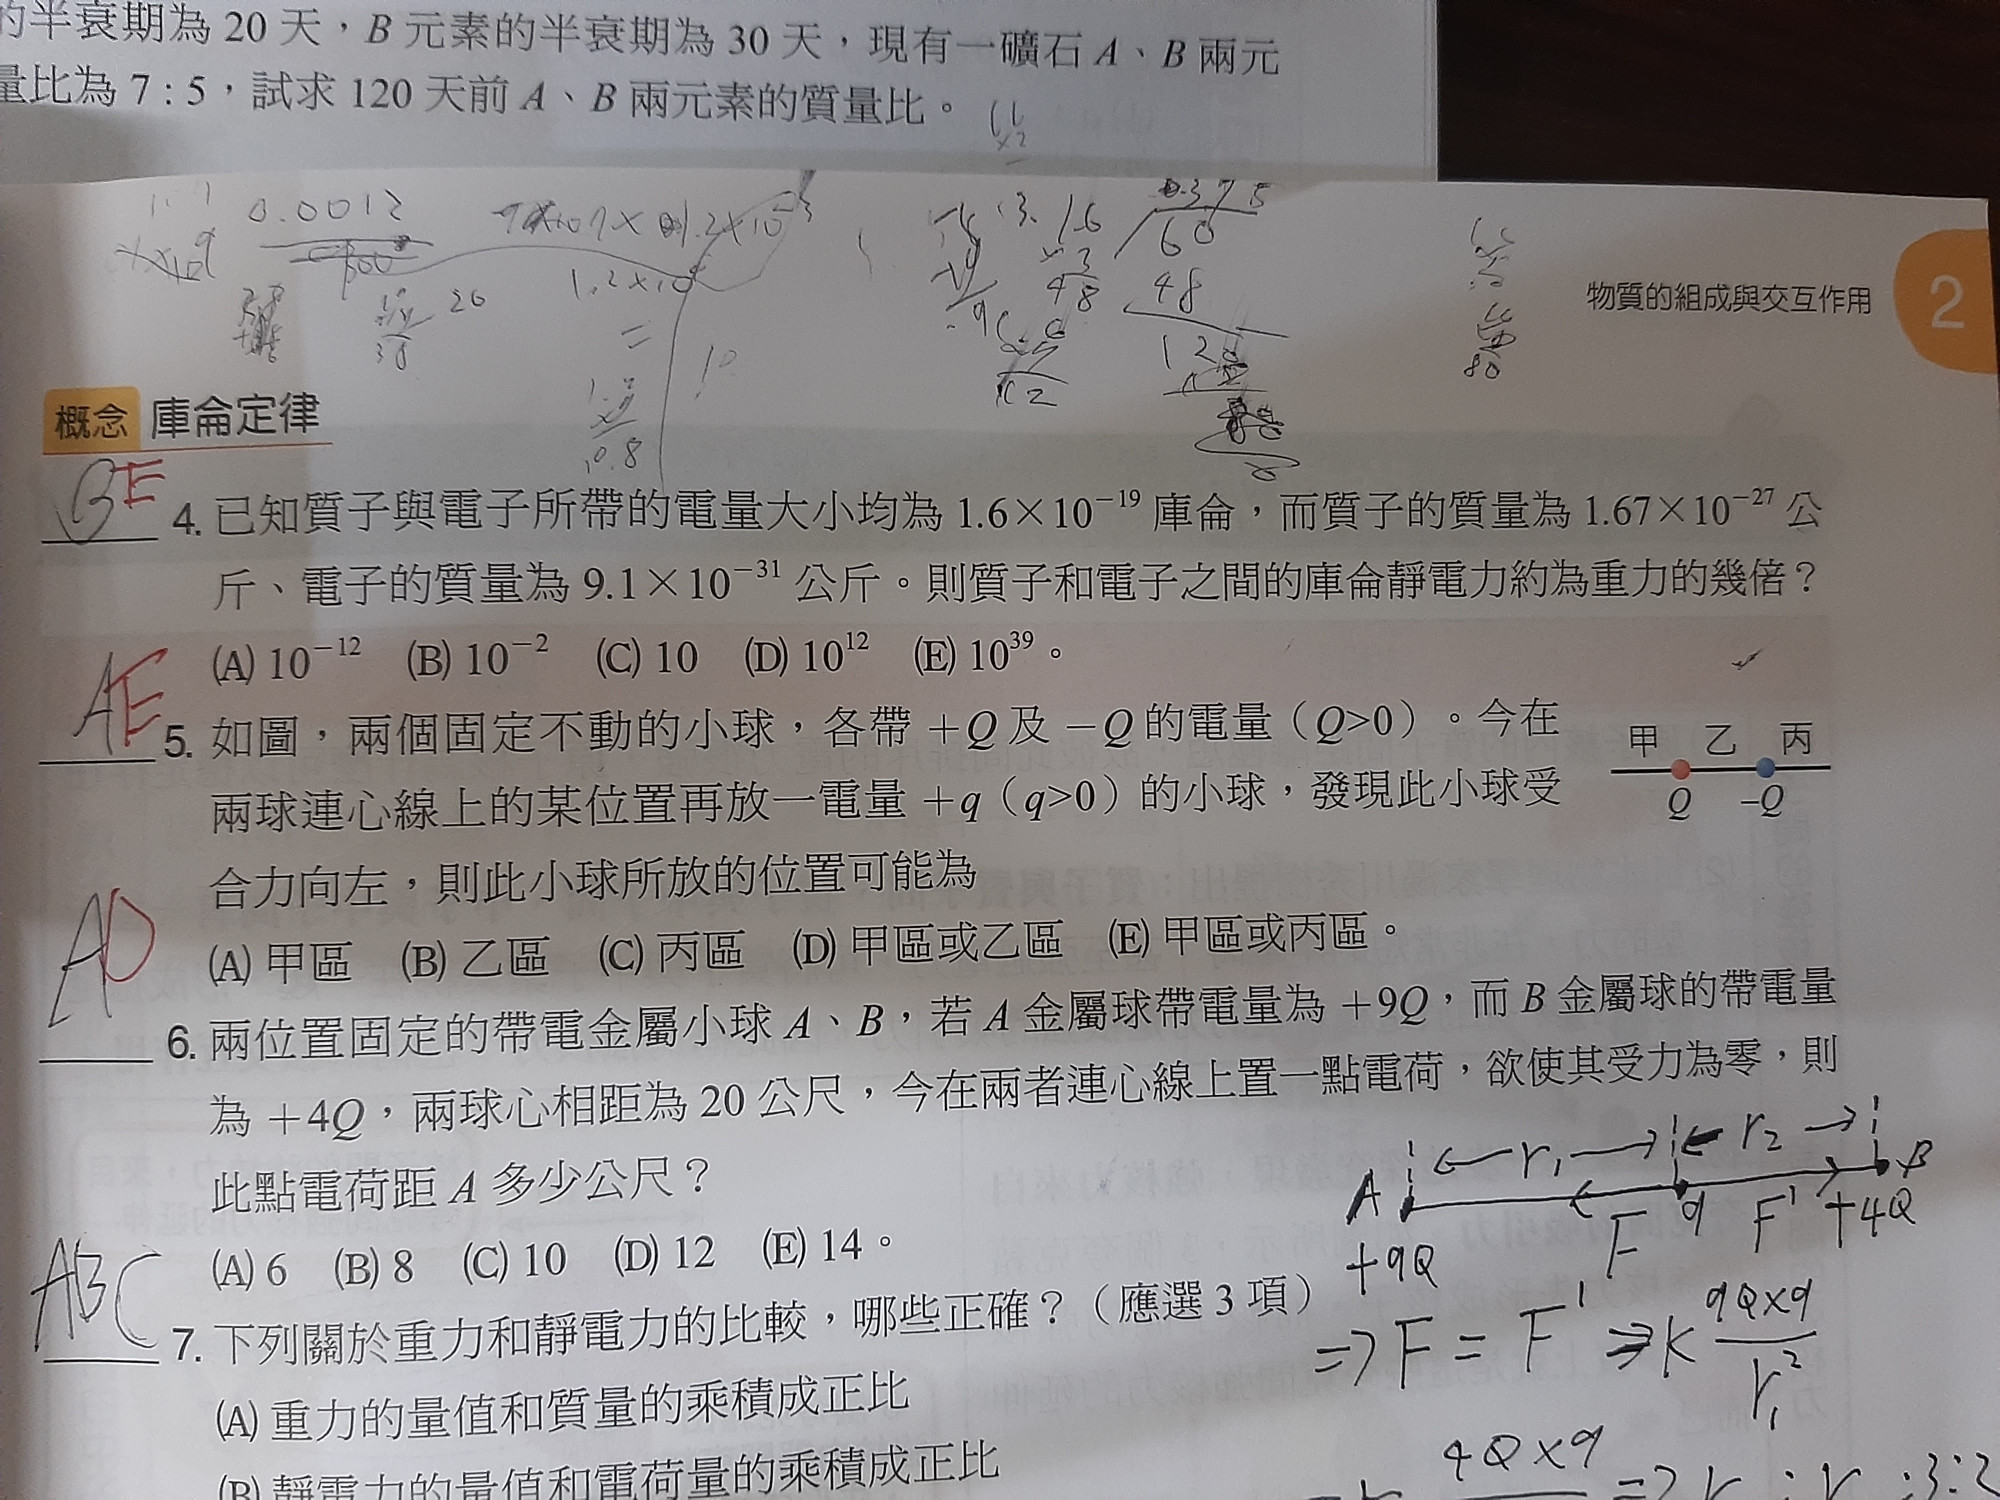 的半衰期為 20 天，B 元素的半衰期為 30 天，現有一礦石 A、B 兩元
量比為 7：5，試求 120 天前 A、B 兩元素的質量比。
0.0012
物質的組成與交互作用 2
概念 庫侖定律
BE 4. 已知質子與電子所帶的電量大小均為 1.6×10⁻¹⁹ 庫侖，而質子的質量為 1.67×10⁻²⁷ 公
斤、電子的質量為 9.1×10⁻³¹ 公斤。則質子和電子之間的庫侖靜電力約為重力的幾倍？
(A) 10⁻¹² (B) 10⁻² (C) 10 (D) 10¹² (E) 10³⁹。
AE 5. 如圖，兩個固定不動的小球，各帶 +Q 及 −Q 的電量（Q>0）。今在
兩球連心線上的某位置再放一電量 +q（q>0）的小球，發現此小球受
合力向左，則此小球所放的位置可能為
甲 乙 丙
Q −Q
(A) 甲區 (B) 乙區 (C) 丙區 (D) 甲區或乙區 (E) 甲區或丙區。
AD 6. 兩位置固定的帶電金屬小球 A、B，若 A 金屬球帶電量為 +9Q，而 B 金屬球的帶電量
為 +4Q，兩球心相距為 20 公尺，今在兩者連心線上置一點電荷，欲使其受力為零，則
此點電荷距 A 多少公尺？
(A) 6 (B) 8 (C) 10 (D) 12 (E) 14。
r₁ r₂
A B
+9Q F q F' +4Q
⇒ F = F' ⇒ K 9Q×q / r₁²
4Q×q
ABC 7. 下列關於重力和靜電力的比較，哪些正確？（應選 3 項）
(A) 重力的量值和質量的乘積成正比
(B) 靜電力的量值和電荷量的乘積成正比